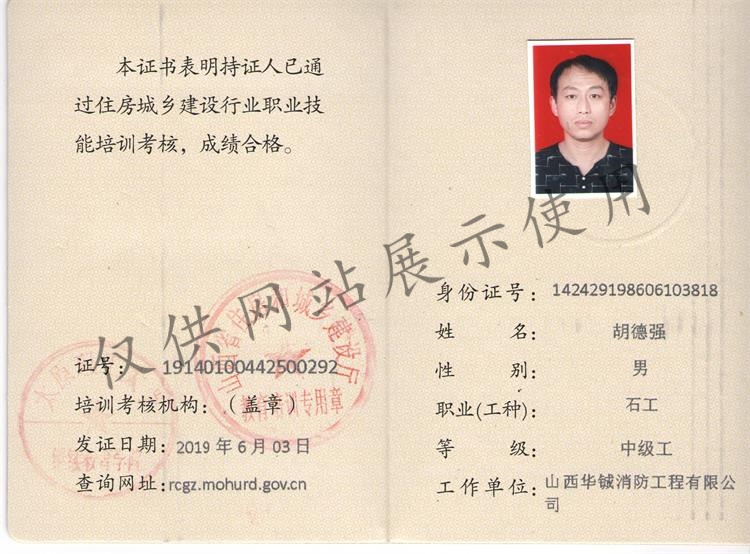 本证书表明持证人已通
过住房城乡建设行业职业技
能培训考核，成绩合格。
证号： 19140100442500292
培训考核机构：（盖章）
发证日期：2019 年 6 月 03 日
查询网址：rcgz.mohurd.gov.cn
山西省住房和城乡建设厅
教育培训专用章
身份证号： 142429198606103818
姓 名： 胡德强
性 别： 男
职业(工种)： 石工
等 级： 中级工
工作单位：山西华铖消防工程有限公
司
仅供网站展示使用